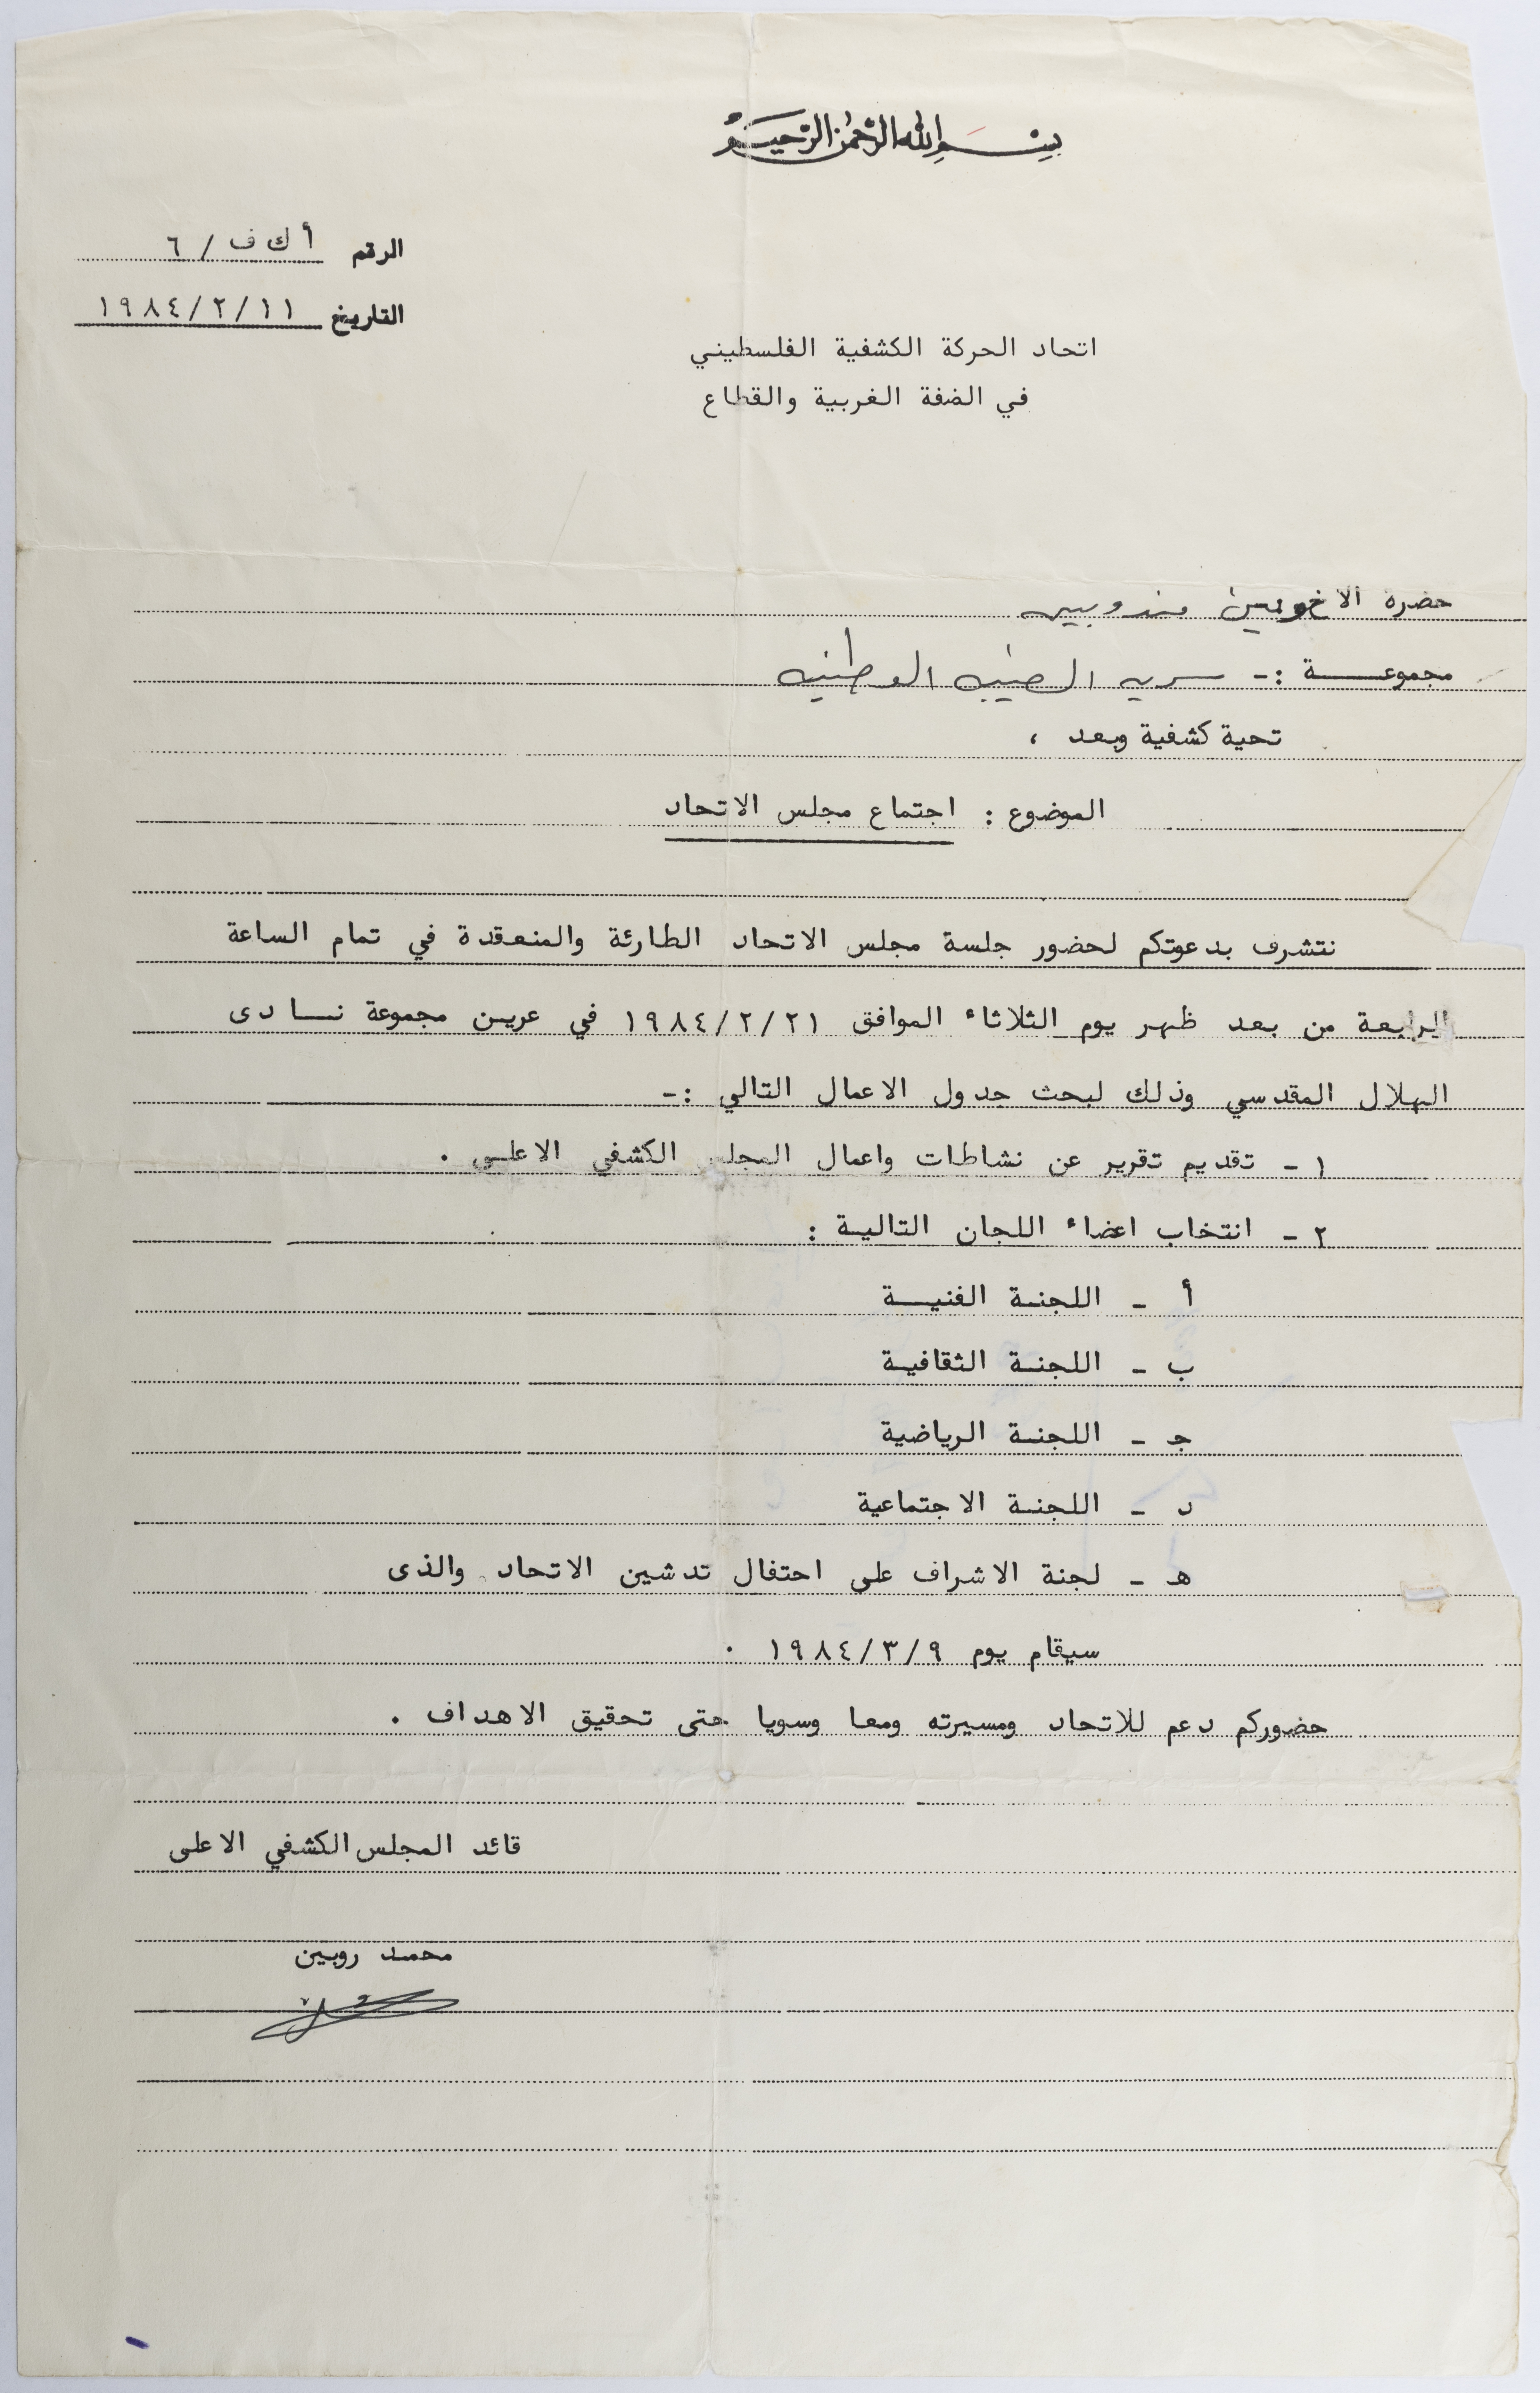 بسم الله الرحمن الرحيم
الرقم أ ك ف / ٦
التاريخ ١٩٨٤/٢/١١
اتحاد الحركة الكشفية الفلسطيني
في الضفة الغربية والقطاع
حضرة الاخوين مندوبين
مجموعـــــة :- سريه الوطنيه
تحية كشفية وبعد ،
الموضوع : اجتماع مجلس الاتحاد
نتشرف بدعوتكم لحضور جلسة مجلس الاتحاد الطارئة والمنعقدة في تمام الساعة
الرابعة من بعد ظهر يوم الثلاثاء الموافق ١٩٨٤/٢/٢١ في عريـن مجموعة نـــادى
الهلال المقدسي وذلك لبحث جدول الاعمال التالي :-
١ - تقديم تقرير عن نشاطات واعمال المجلس الكشفي الاعلـى .
٢ - انتخاب اعضاء اللجان التاليـة :
أ - اللجنـة الفنيـــة
ب - اللجنـة الثقافيـة
جـ - اللجنـة الرياضية
د - اللجنـة الاجتماعية
هـ - لجنة الاشراف على احتفال تدشين الاتحاد والذى
سيقام يوم ١٩٨٤/٣/٩ .
حضوركم دعم للاتحاد ومسيرته ومعا وسويا حتى تحقيق الاهداف .
قائد المجلس الكشفي الاعلى
محمـد روبـين